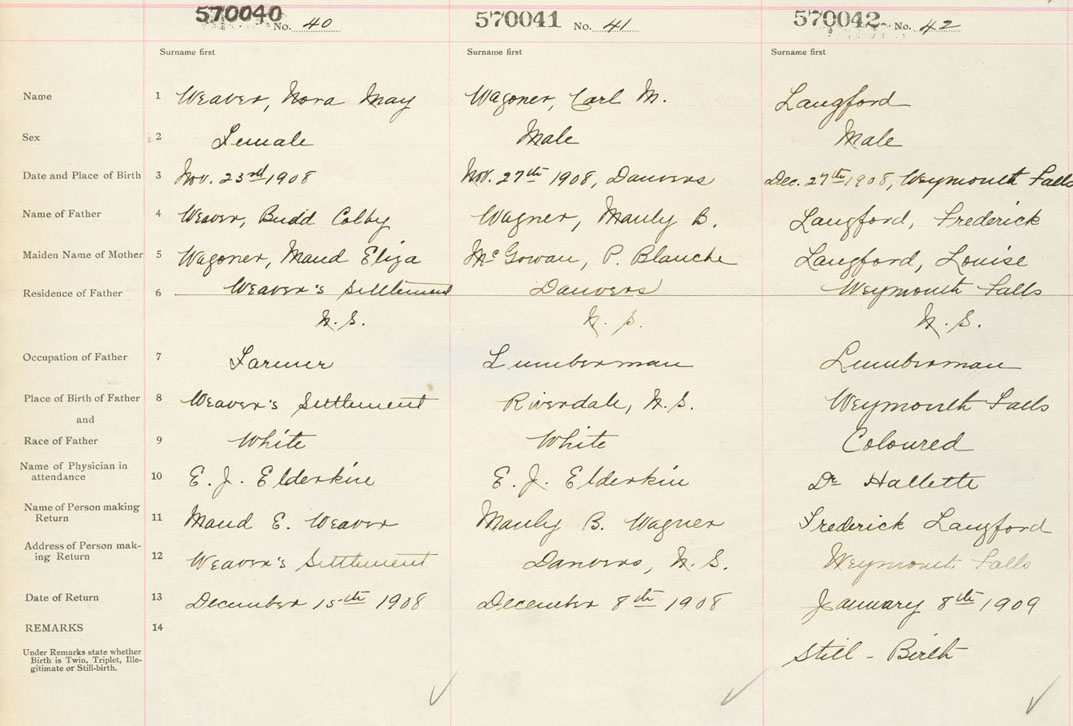 570040 No. 40 570041 No. 41 570042 No. 42
Surname first Surname first Surname first
Name 1 Weaver, Nora May Wagoner, Carl M. Langford
Sex 2 Female Male Male
Date and Place of Birth 3 Nov. 23rd 1908 Nov. 27th 1908, Danvers Dec. 27th 1908, Weymouth Falls
Name of Father 4 Weaver, Budd Colby Wagner, Mauly B. Langford, Frederick
Maiden Name of Mother 5 Wagoner, Maud Eliza McGowan, P. Blanche Langford, Louise
Residence of Father 6 Weaver's Settlement Danvers Weymouth Falls
N.S. N.S. N.S.
Occupation of Father 7 Farmer Lumberman Lumberman
Place of Birth of Father 8 Weaver's Settlement Riverdale, N.S. Weymouth Falls
and
Race of Father 9 White White Coloured
Name of Physician in
attendance 10 E. J. Elderkin E. J. Elderkin Dr Hallette
Name of Person making
Return 11 Maud E. Weaver Mauly B. Wagner Frederick Langford
Address of Person mak-
ing Return 12 Weaver's Settlement Danvers, N.S. Weymouth Falls
Date of Return 13 December 15th 1908 December 8th 1908 January 8th 1909
REMARKS 14
Under Remarks state whether
Birth is Twin, Triplet, Ille-
gitimate or Still-birth.
Still-Birth